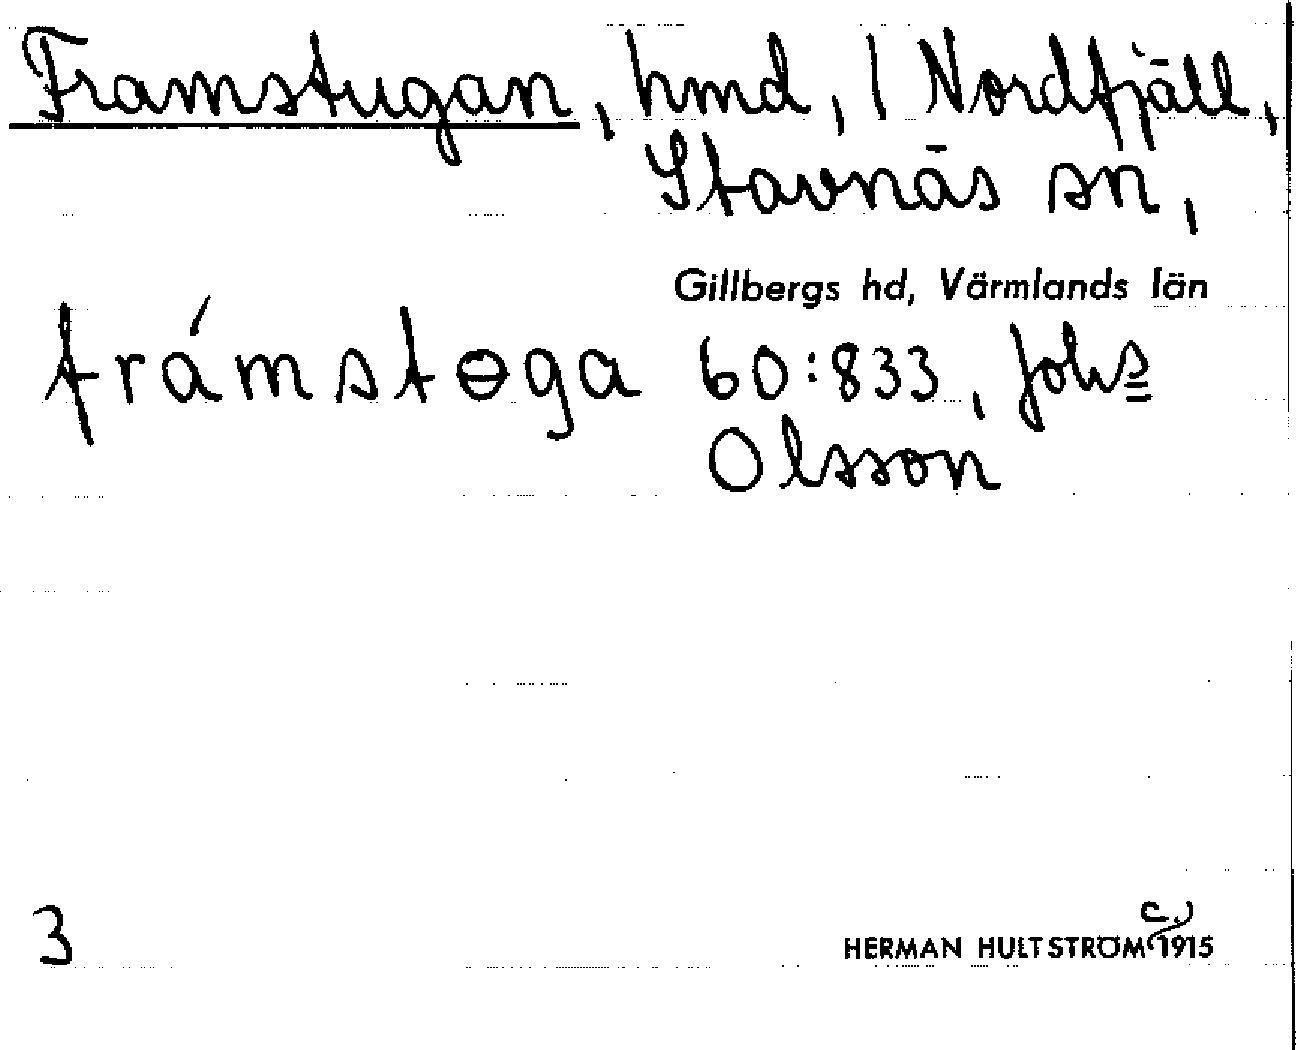 Framstugan, hmd, 1 Nordfjäll,
Stavnäs sn,
Gillbergs hd, Värmlands län
frámstɵga 60:833, Johs
Olsson
3
c.)
HERMAN HULTSTRÖM 1915